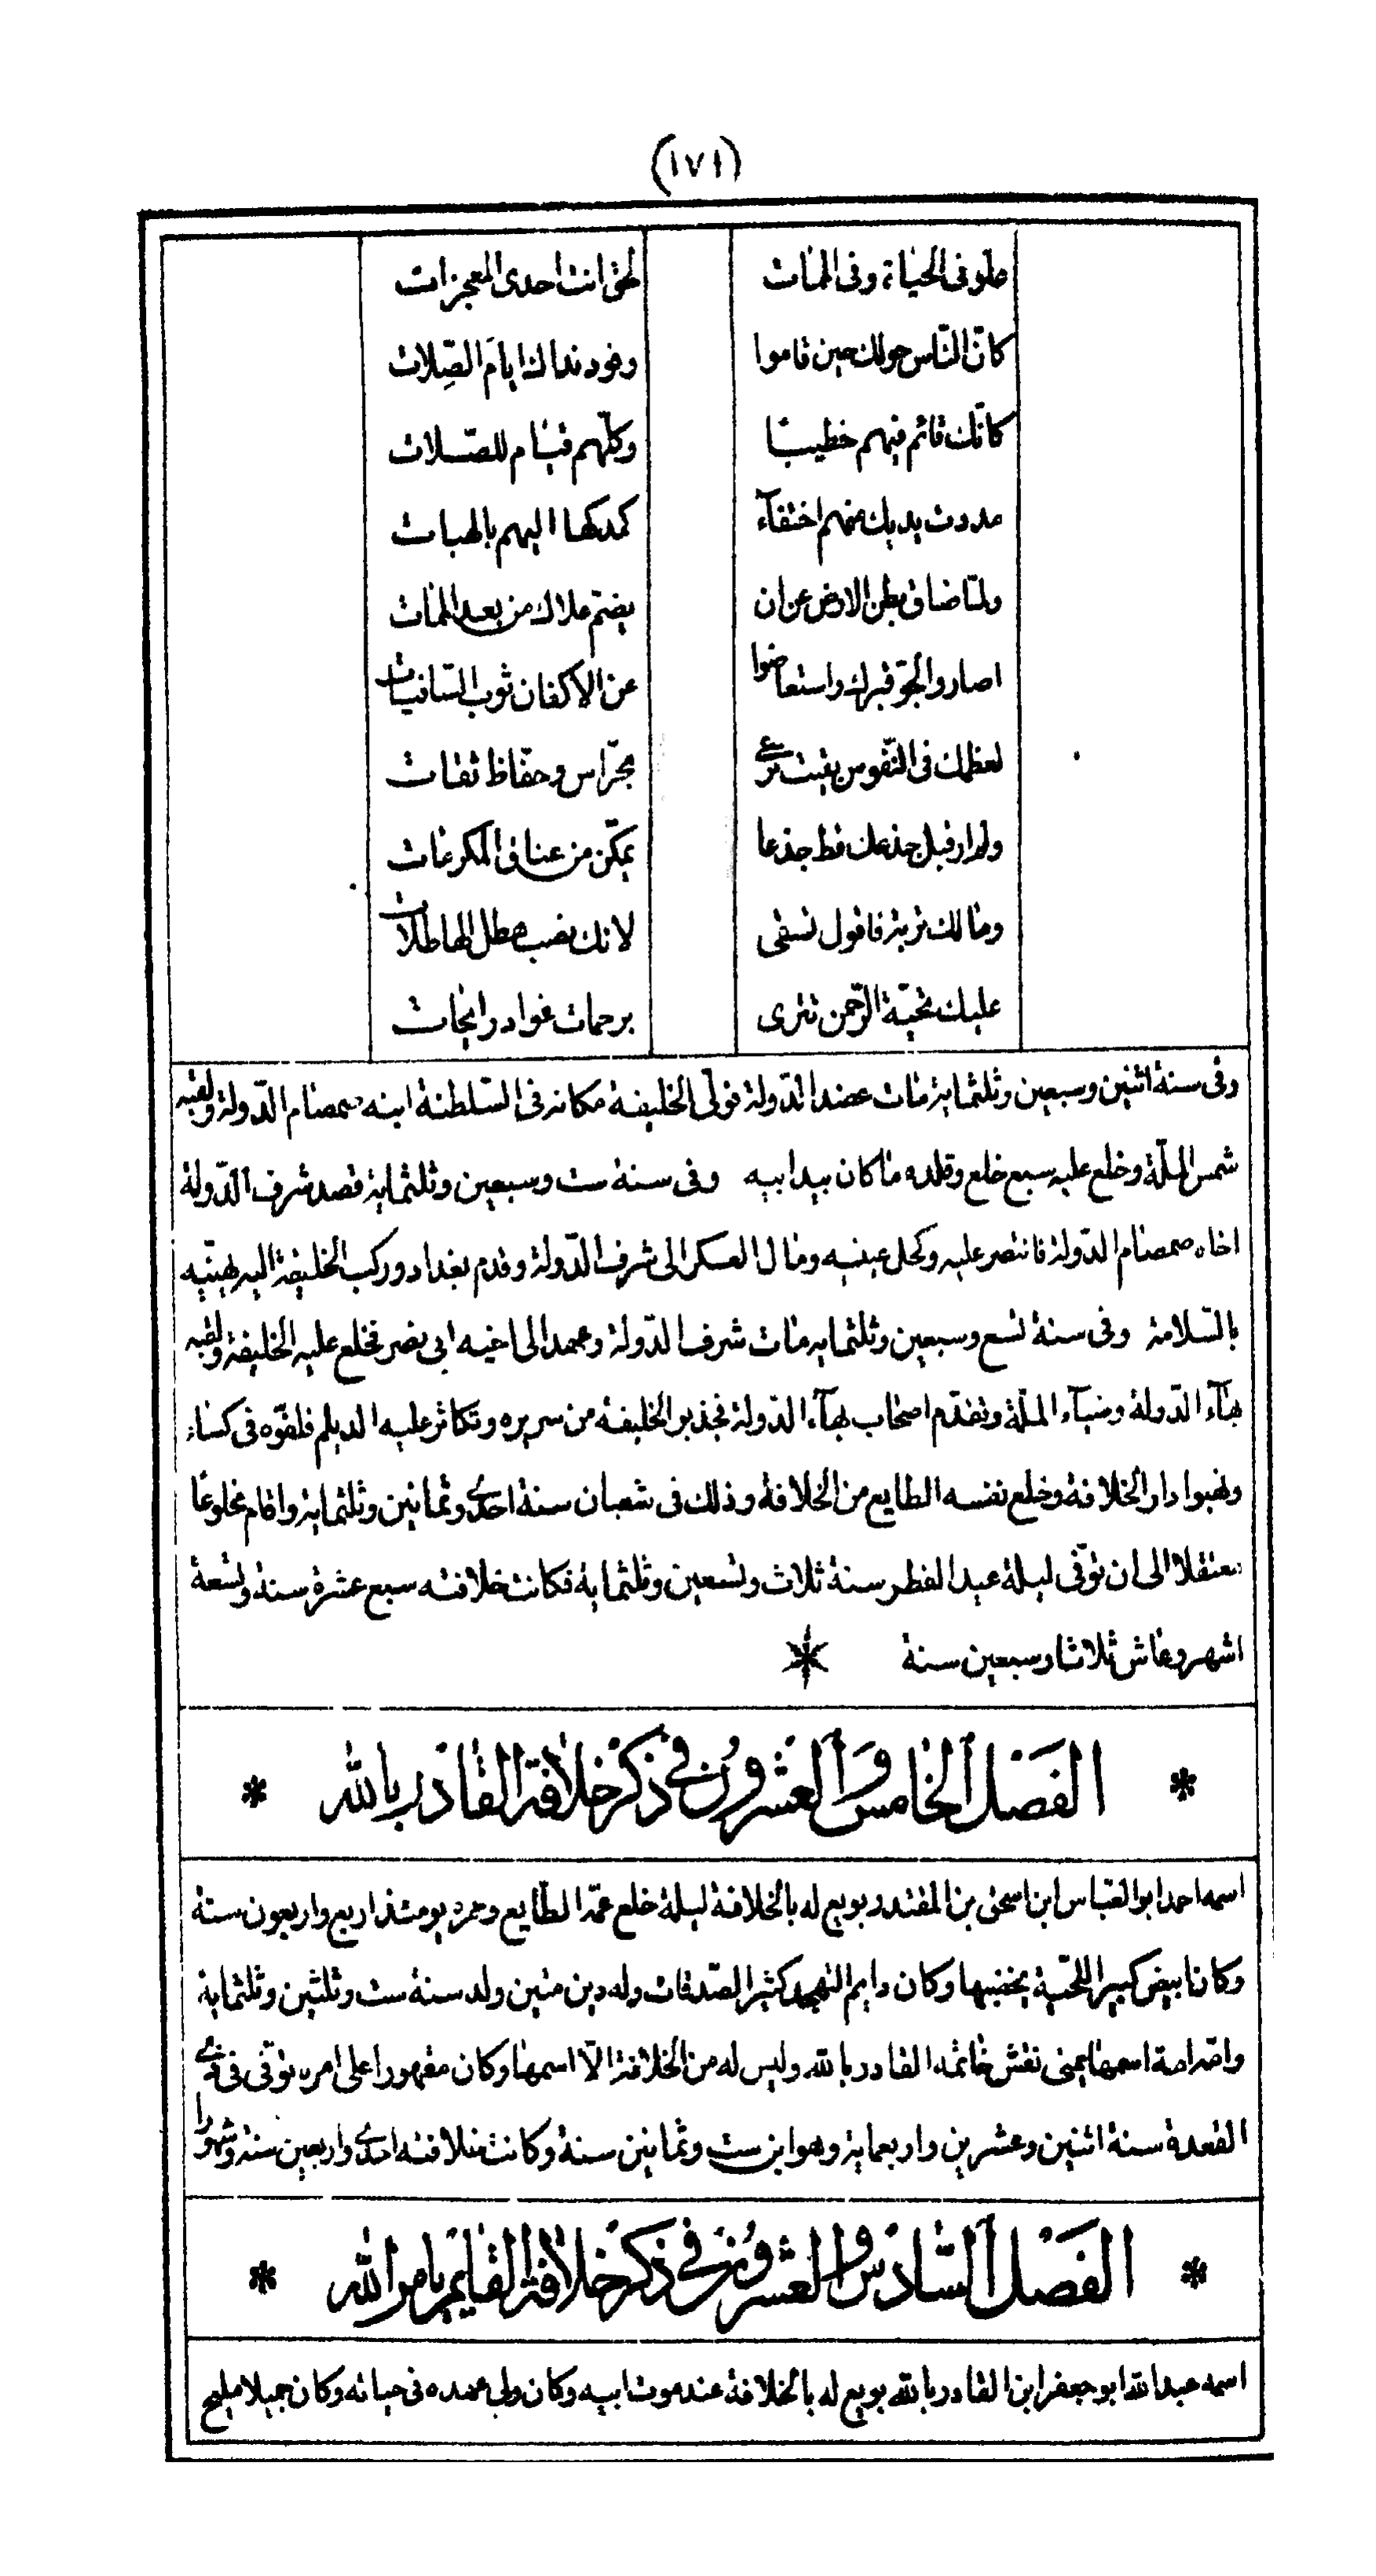 (١٧١)
علو فى الحياة وفى الممات لحق انت احدى المعجزات
كانّ النّاس حولك حين قاموا وفود نداك ايام الصِّلات
كانّك قائم فيهم خطيبا وكلّهم قيام للصّلات
مددت يديك نحوهم احتفآء كمدكها اليهم بالهبات
ولمّا ضاق بطن الارض عن ان يضمّ علاك من بعد الممات
اصاروا الجوّ قبرك واستعاضوا عن الاكفان ثوب السّافيات
لعظمك فى النّفوس بقيت ترعى بحرّاس وحفّاظ ثقات
ولم ار قبل جذعك قط جذعا يمكّن من عناق المكرمات
ومالك تربة فاقول تسقى لانك نصب هطل الهاطلات
عليك تحيّة الرّحمن تترى برحمات غواد رايحات
وفى سنة اثنين وسبعين وثلثماية مات عضد الدّولة فولّى الخليفة مكانه فى السّلطنة ابنه صمصام الدّولة ولقبه
شمس الملّة وخلع عليه سبع خلع وقلده ما كان بيد ابيه وفى سنة ست وسبعين وثلثماية قصد شرف الدّولة
اخاه صمصام الدّولة فانتصر عليه وكحل عينيه ومال العسكر الى شرف الدّولة وقدم بغداد وركب الخليفة اليه يهنيه
بالسّلامة وفى سنة تسع وسبعين وثلثمايه مات شرف الدّولة وعهد الى اخيه ابى نصر فخلع عليه الخليفة ولقبه
بهآء الدّولة وضيآء الملّة وتقدّم اصحاب بهآء الدّولة فجذبوا الخليفه من سريره وتكاثر عليه الديلم فلفوّه فى كساء
ونهبوا دار الخلافة وخلع نفسه الطايع من الخلافة وذلك فى شعبان سنة احدى وثمانين وثلثماية واقام مخلوعا
معتقلا الى ان توّفى ليلة عيد الفطر سنة ثلاث وتسعين وثلثماية فكانت خلافته سبع عشرة سنة وتسعة
اشهر وعاش ثلاثا وسبعين سنة *
* الفصل الخامس والعشرون فى ذكر خلافة القادر بالله *
اسمه احمد ابو العباس ابن اسحق بن المقتدر بويع له بالخلافة ليلة خلع عمّه الطّايع وعمره يومئذ اربع واربعون سنة
وكان ابيض كبير اللحيّة يخضبها وكان دايم التهجد كثير الصّدقات وله دين متين ولد سنة ست وثلثين وثلثماية
وامّه امة اسمها يمنى نقش خاتمه القادر بالله وليس له من الخلافة الّا اسمها وكان مقهورا على امره توّفى فى ذى
القعدة سنة اثنين وعشرين واربعماية وهو ابن ست وثمانين سنة وكانت خلافته احدى واربعين سنة وشهورا
* الفصل السّادس والعشرون فى ذكر خلافة القايم بامر الله *
اسمه عبد الله ابو جعفر ابن القادر بالله بويع له بالخلافة عند موت ابيه وكان ولى عهده فى حياته وكان جميلا مليح